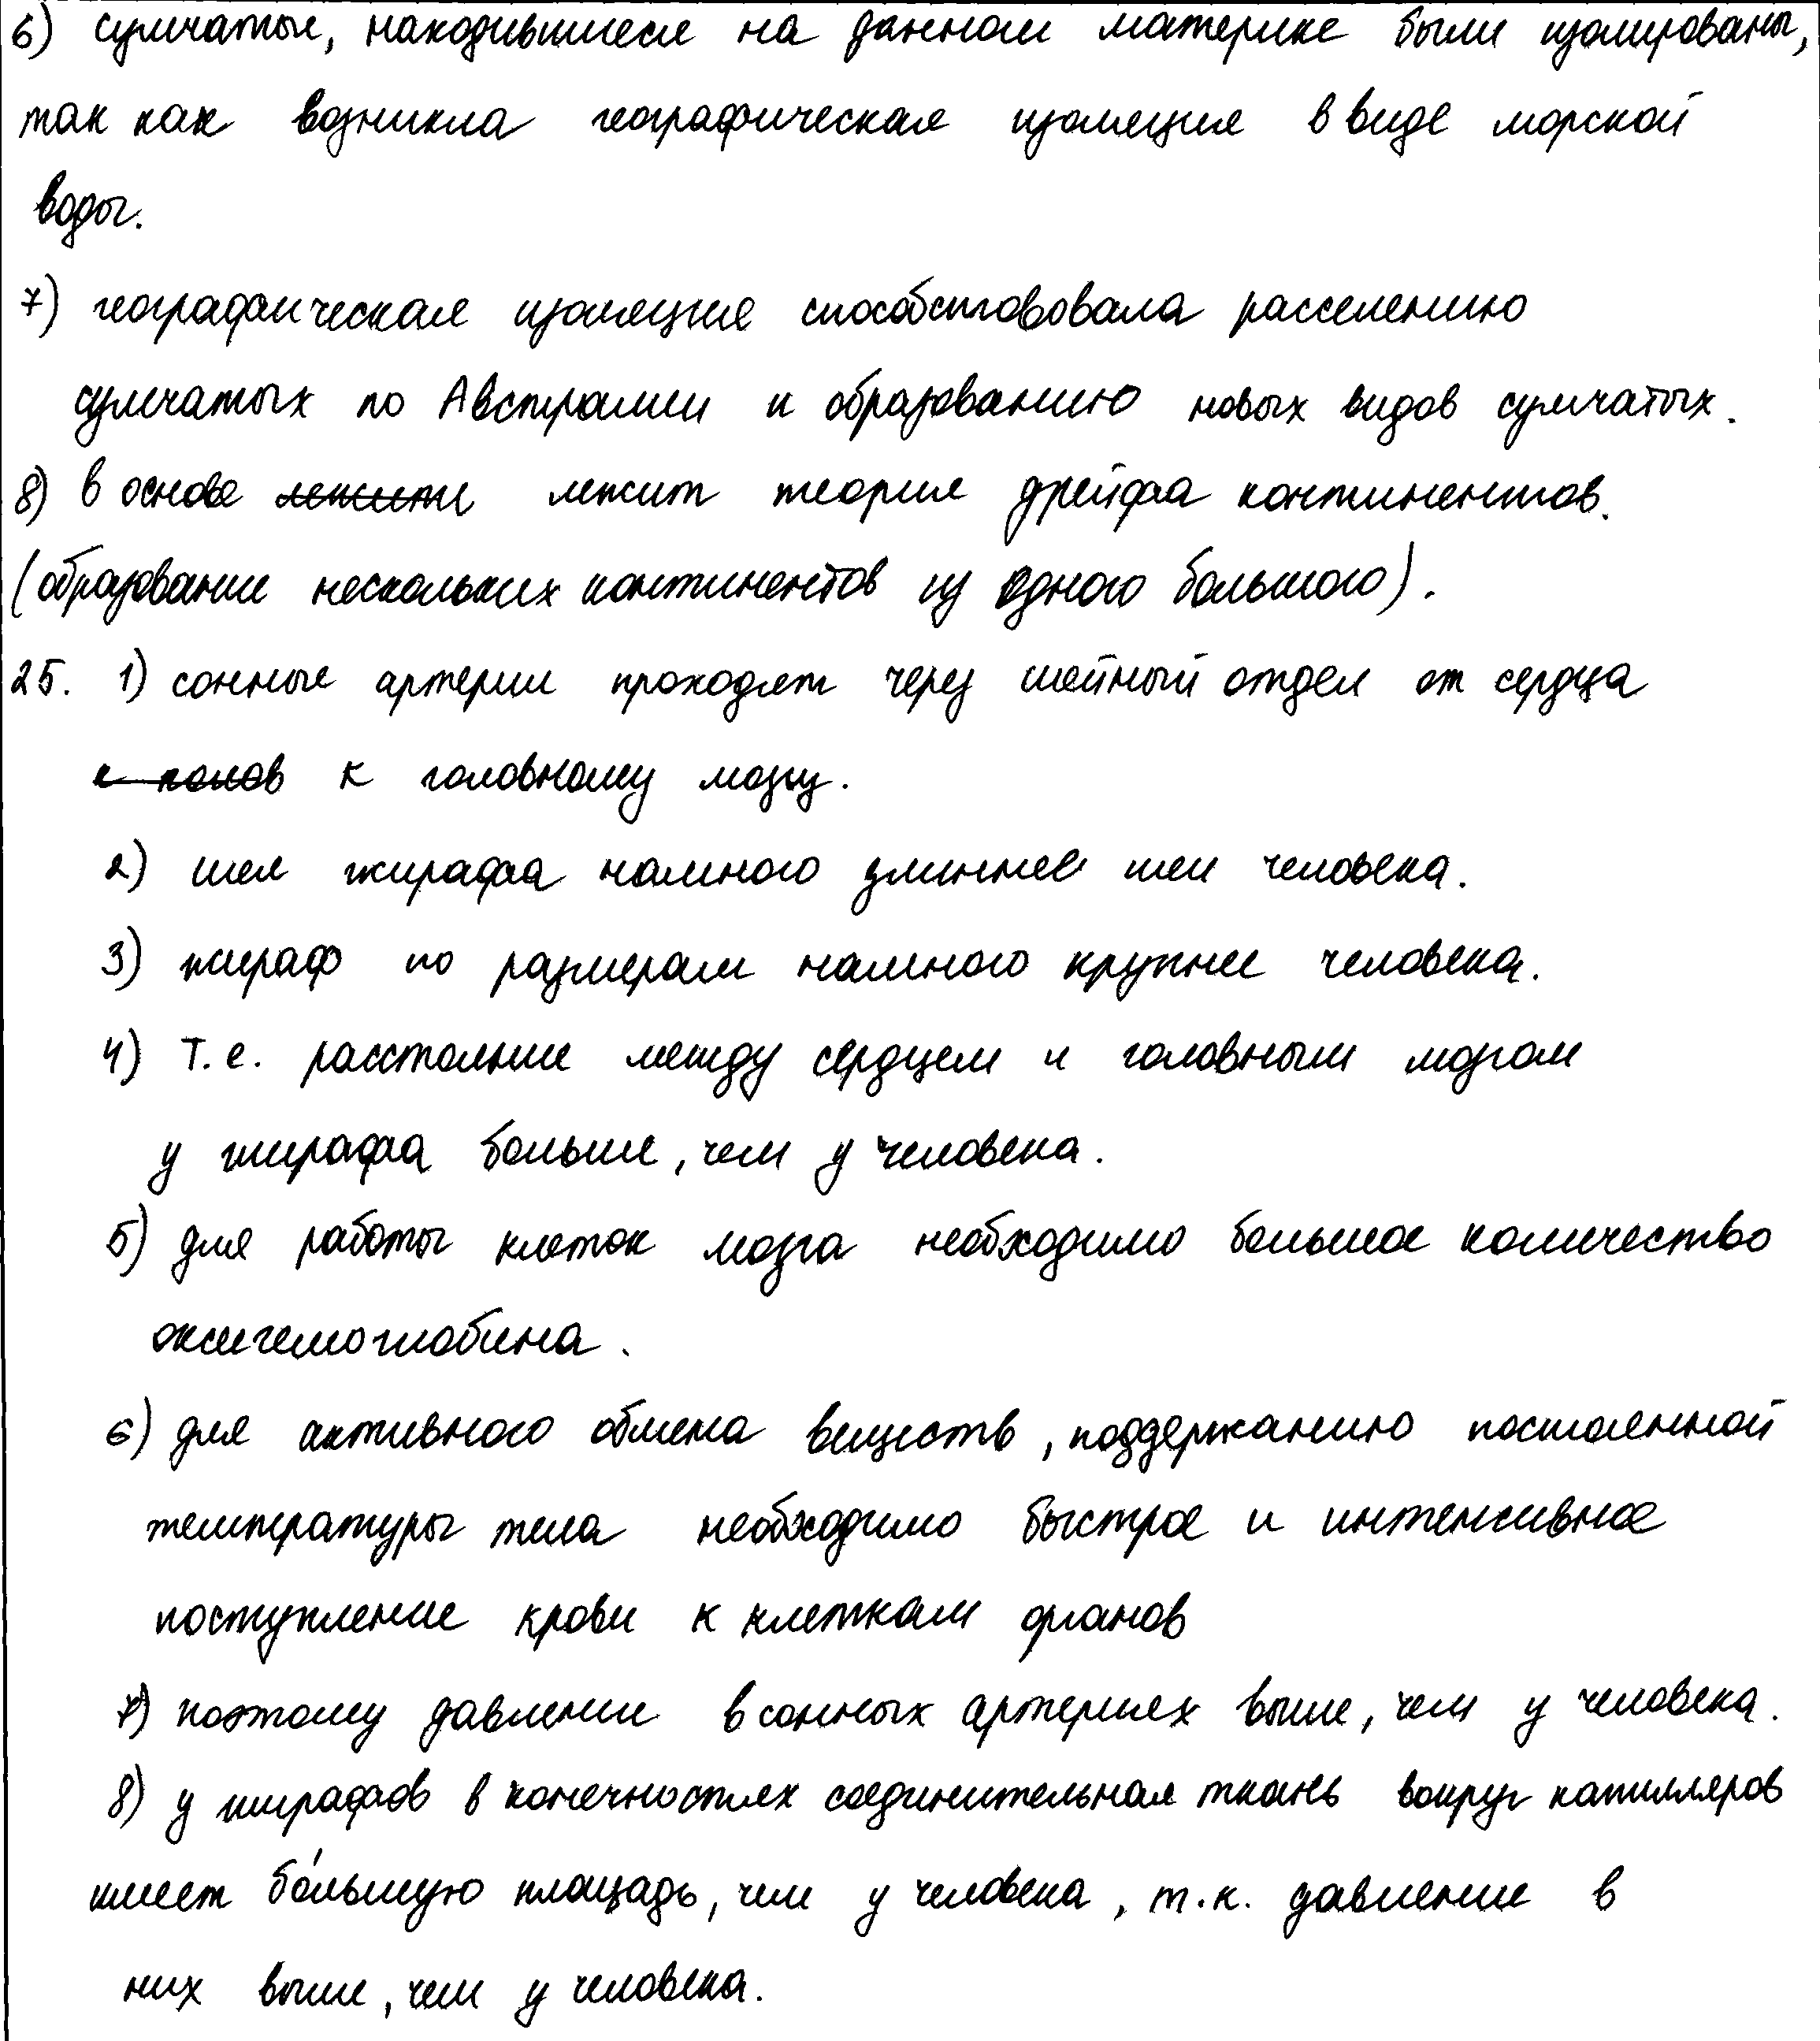 6) сумчатые, находившиеся на данном материке были изолированы,
так как возникла географическая изоляция в виде морской
воды.
7) географическая изоляция способствовала расселению
сумчатых по Австралии и образованию новых видов сумчатых.
8) в основе лежит лежит теория дрейфа континентов.
(образование нескольких континентов из одного большого).
25. 1) сонные артерии проходят через шейный отдел от сердца
к голов к головному мозгу.
2) шея жирафа намного длиннее шеи человека.
3) жираф по размерам намного крупнее человека.
4) Т.е. расстояние между сердцем и головным мозгом
у жирафа больше, чем у человека.
5) для работы клеток мозга необходимо большое количество
оксигемоглобина.
6) для активного обмена веществ, поддержанию постоянной
температуры тела необходимо быстрое и интенсивное
поступление крови к клеткам органов
7) поэтому давление в сонных артериях выше, чем у человека.
8) у жирафов в конечностях соединительная ткань вокруг капилляров
имеет бо́льшую площадь, чем у человека, т.к. давление в
них выше, чем у человека.